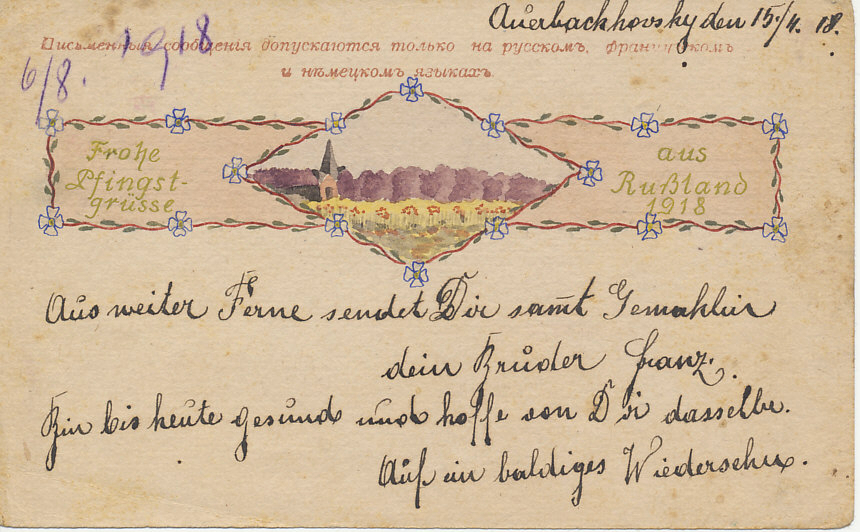 Auerbackhovsky den 15./4. 18.
6/8. 1918
Письменныя сообщенія допускаются только на русскомъ, французскомъ
и нѣмецкомъ языкахъ.
Frohe
Pfingst-
grüsse
aus
Rußland
1918
Aus weiter Ferne sendet Dir samt Gemahlin
dein Bruder Franz.
Bin bis heute gesund und hoffe von Dir dasselbe.
Auf ein baldiges Wiedersehn.